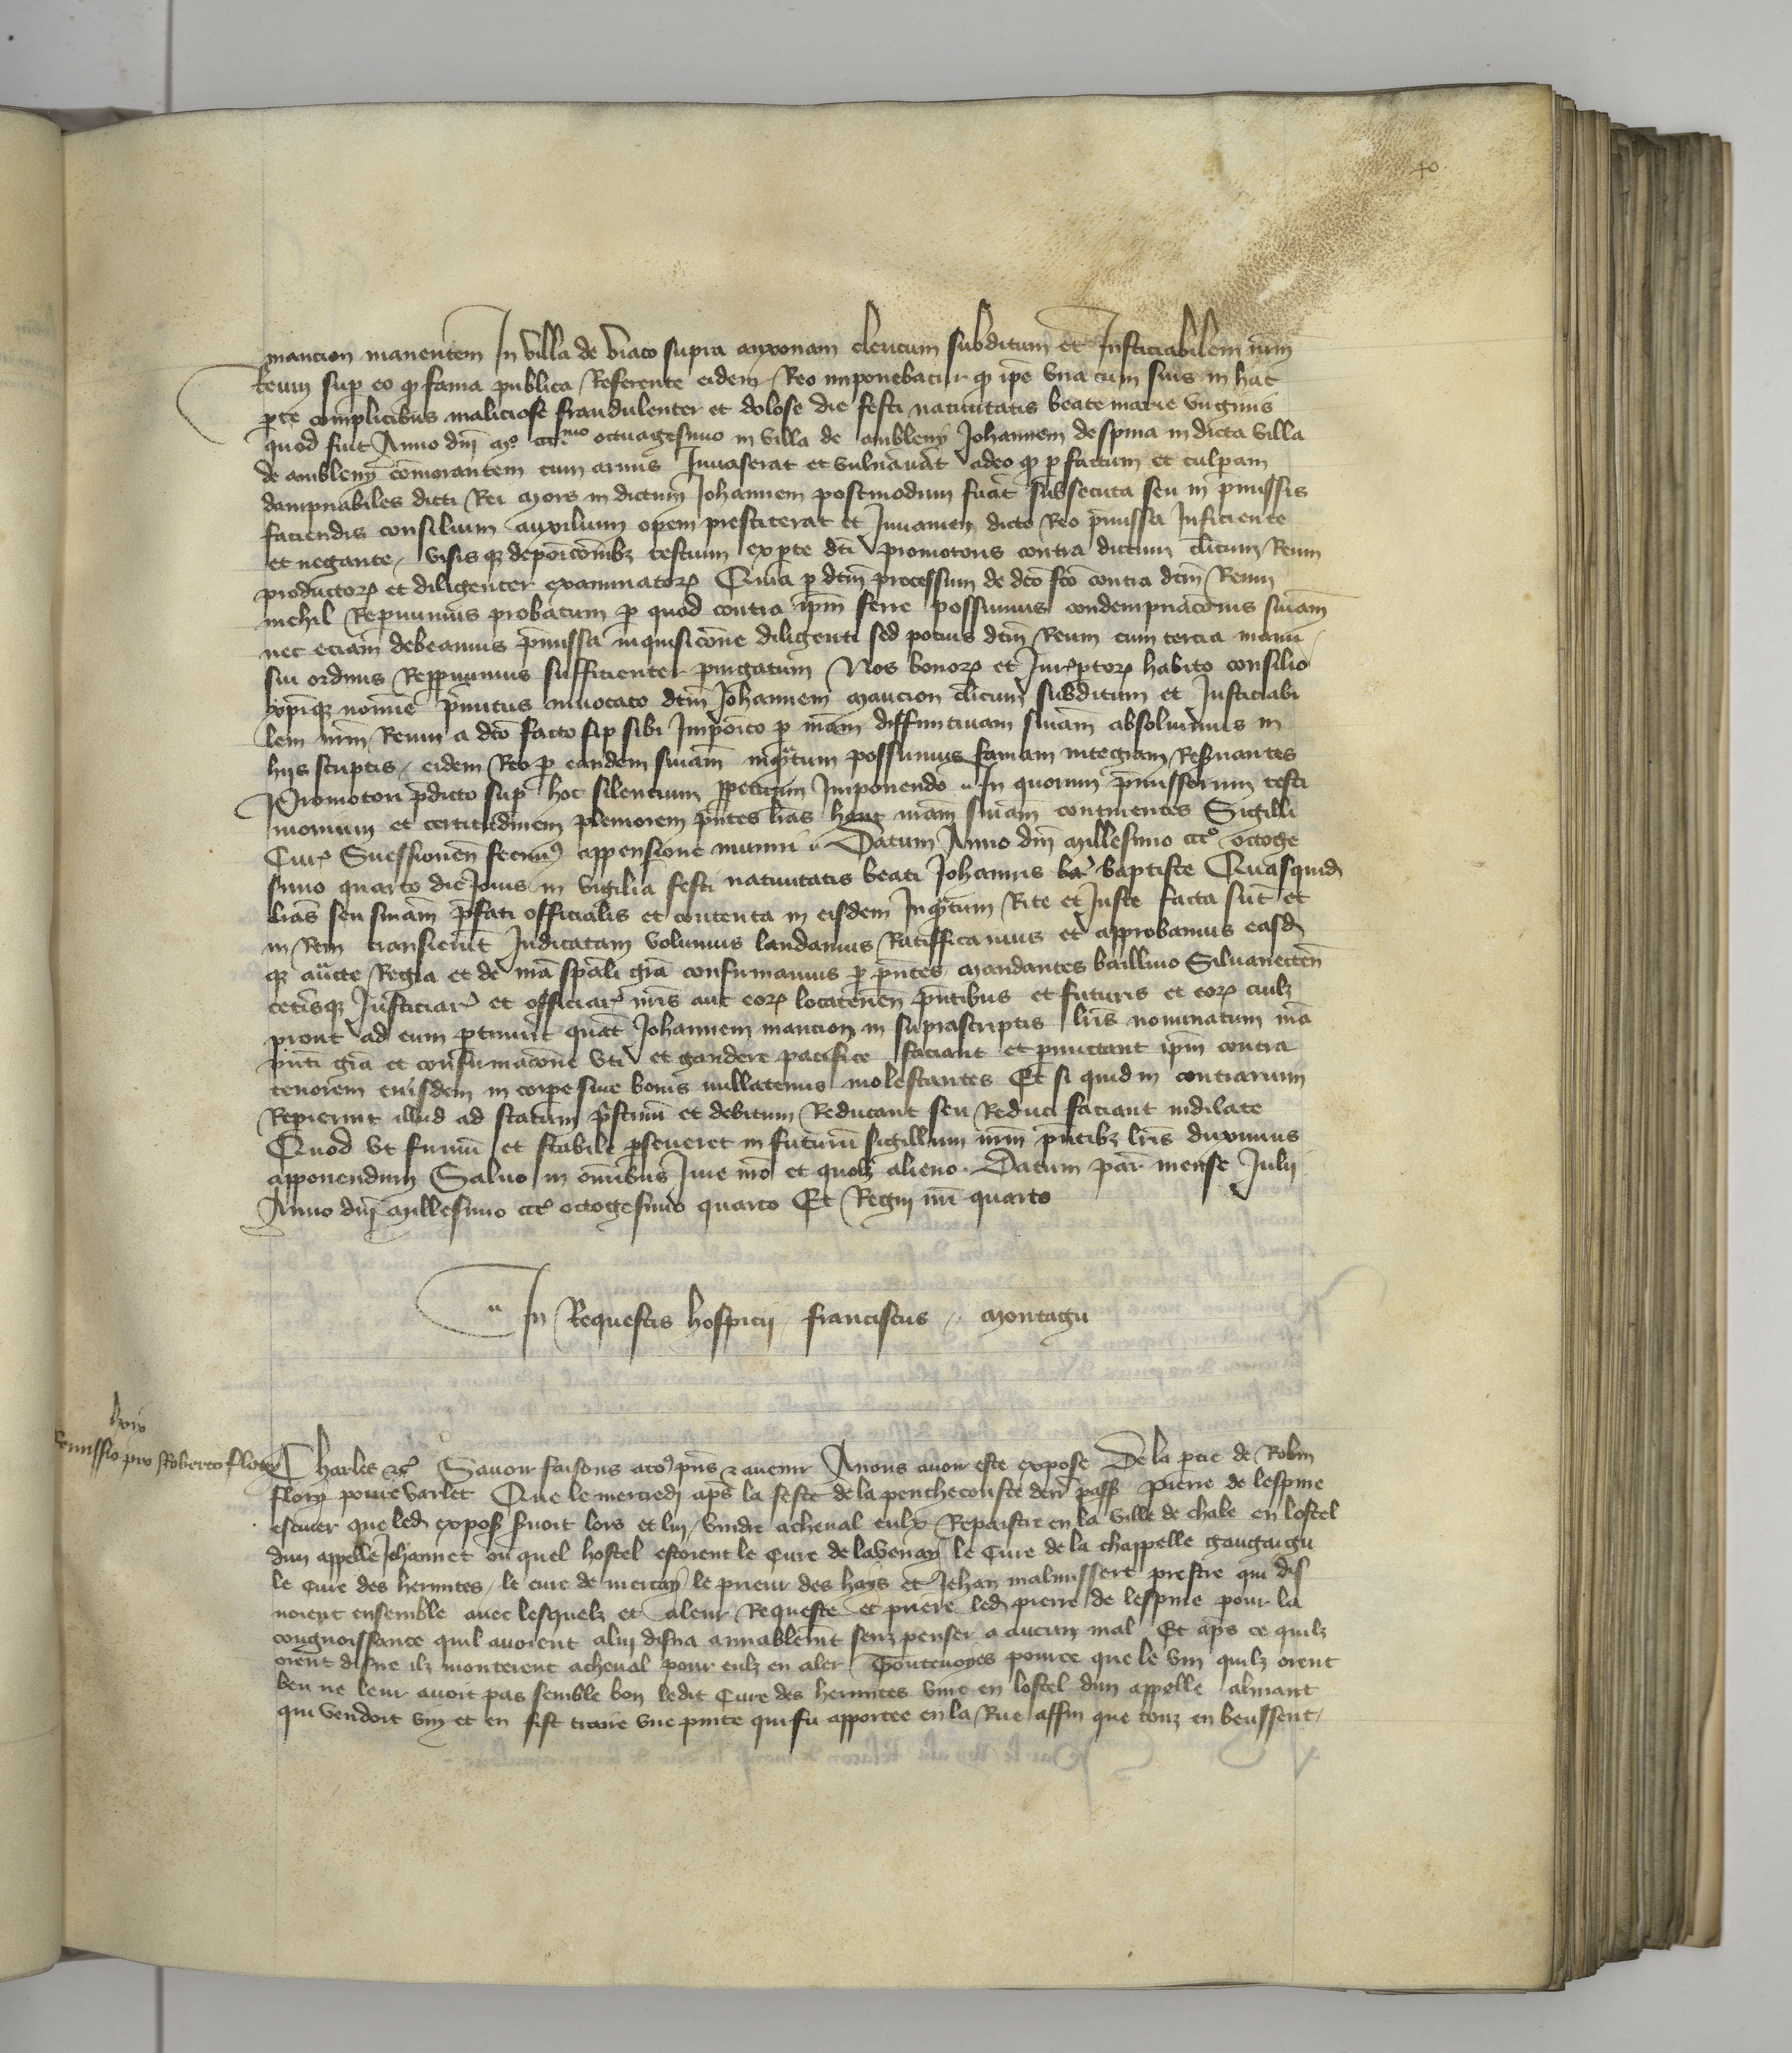 40
mancion manentem In villa de viaco supra axonam clericum subditum et Justiciabilem nrm
Reum sup eo q fama publica Referente eidem Reo imponebatur q ipe vna cum suis in hac
pte complicibus maliciose fraudulenter et dolose die festi natiuitatis beate marie virginis
quod fuit Anno dni mo ccc mo octuagesimo in villa de ambleny Johannem de spina in dicta villa
de ambleny comorantem cum armis Inuaserat et vulnauat adeo q p factum et culpam
dampnabiles dicti Rei mors in dictum Johannem postmodum fuat subsecuta seu in pmissis
faciendis consilium auxilium opem prestiterat et Juuamen dicto Reo pmissa Inficiente
et negante / visis q deponicoibz testium ex pte dti promotoris contra dictum clicum Reum
productor et diligenter examinator Quia p dcm processum de dco fco contra dcm Reum
nichil Reperimus probatum p quod contra ipm ferre possumus condempnacionis sniam
nec eciam debeamus pmissa inquisicone diligenti sed pocius dcm Reum cum tercia manu
sui ordinis Repperimus sufficienter purgatum Nos bonor et Jur ptor habito consilio
xpiq nomine primitus inuocato dcm Johannem mancion clicum subditum et Justiciabi
lem nrm Reum a dco facto sup sibi Impoito p nram diffinitiuam sniam absoluimus in
hijs scriptis / eidem Reo p eandem sniam inqtum possumus famam integram Resuantes
Promotori pdicto sup hoc silencium ppetuum Imponendo In quorum pmissorum testi
monium et certitudinem pleniorem pntes lras hanc nram sniam continentes Sigilli
Curie Suessionen fecimus appensione muniri Datum Anno dni millesimo ccco octoge
simo quarto die Jouis in vigilia festi natiuitatis beati Johannis ba baptiste Quasquid
lras seu sniam pfati officialis et contenta in eisdem Inqtum Rite et Juste facta sut et
in Rem transierut Judicatam volumus laudamus Ratifficamus et approbamus easd
q aucte Regia et de nra spali gra confirmamus p pntes mandantes bailliuo Siluanecten
cetisq Justiciar et officiar nris aut eor locatenen pntibus et futuris et eor cuilz
prout ad eum ptinuit quat Johannem mancion in suprascriptis lris nominatum nra
pnti gra et confirmacone vti et gaudere pacifice faciant et pmittant ipm contra
tenorem eiusdem in corpe siue bonis nullatenus molestantes Et si quid in contrarium
Repierint illud ad statum pstinu et debitum Reducant seu Reduci faciant indilate
Quod vt firmu et stabile pseueret in futuru sigillum nrm pntibz lris duximus
apponendum Saluo in omibus Jure nro et quolz alieno Datum par mense Julij
Anno dni millesimo ccco octogesimo quarto Et Regni nri quarto
In Requestis hospicij franciscus montagu
lxiv
Remissio pro Roberto flory
Charles etc Sauoir faisons a to pns z auenir Anous auoir este expose De la ptie de Robin
flory poure varlet Que le mercredi aps la feste de la penthecouste derr pass pierre de lespine
escuier que led expos suoit lors et luy vindre acheual eulx Repaistre en la ville de chable en lostel
dun appelle Jehannet ou quel hostel estoient le Cure de lauenay le Cure de la chappelle gaugaigu
le Cure des hermites / le cure de mercay le prieur des hays et Jehan malmissert prestre qui dis
noient ensemble auec lesquelz et aleur Requeste et priere led pierre de lespine pour la
congnoissance quil auoient aluy disna amiablemt senz penser a aucun mal Et aps ce quilz
orent disne ilz monterent acheual pour eulz en aler Toutevoyes pource que le vin quilz orent
beu ne leur auoit pas semble bon ledit Cure des hermites vint en lostel dun appelle almant
qui vendoit vin et en fist traire vne pinte qui fu apportee en la Rue affin que touz en beussent